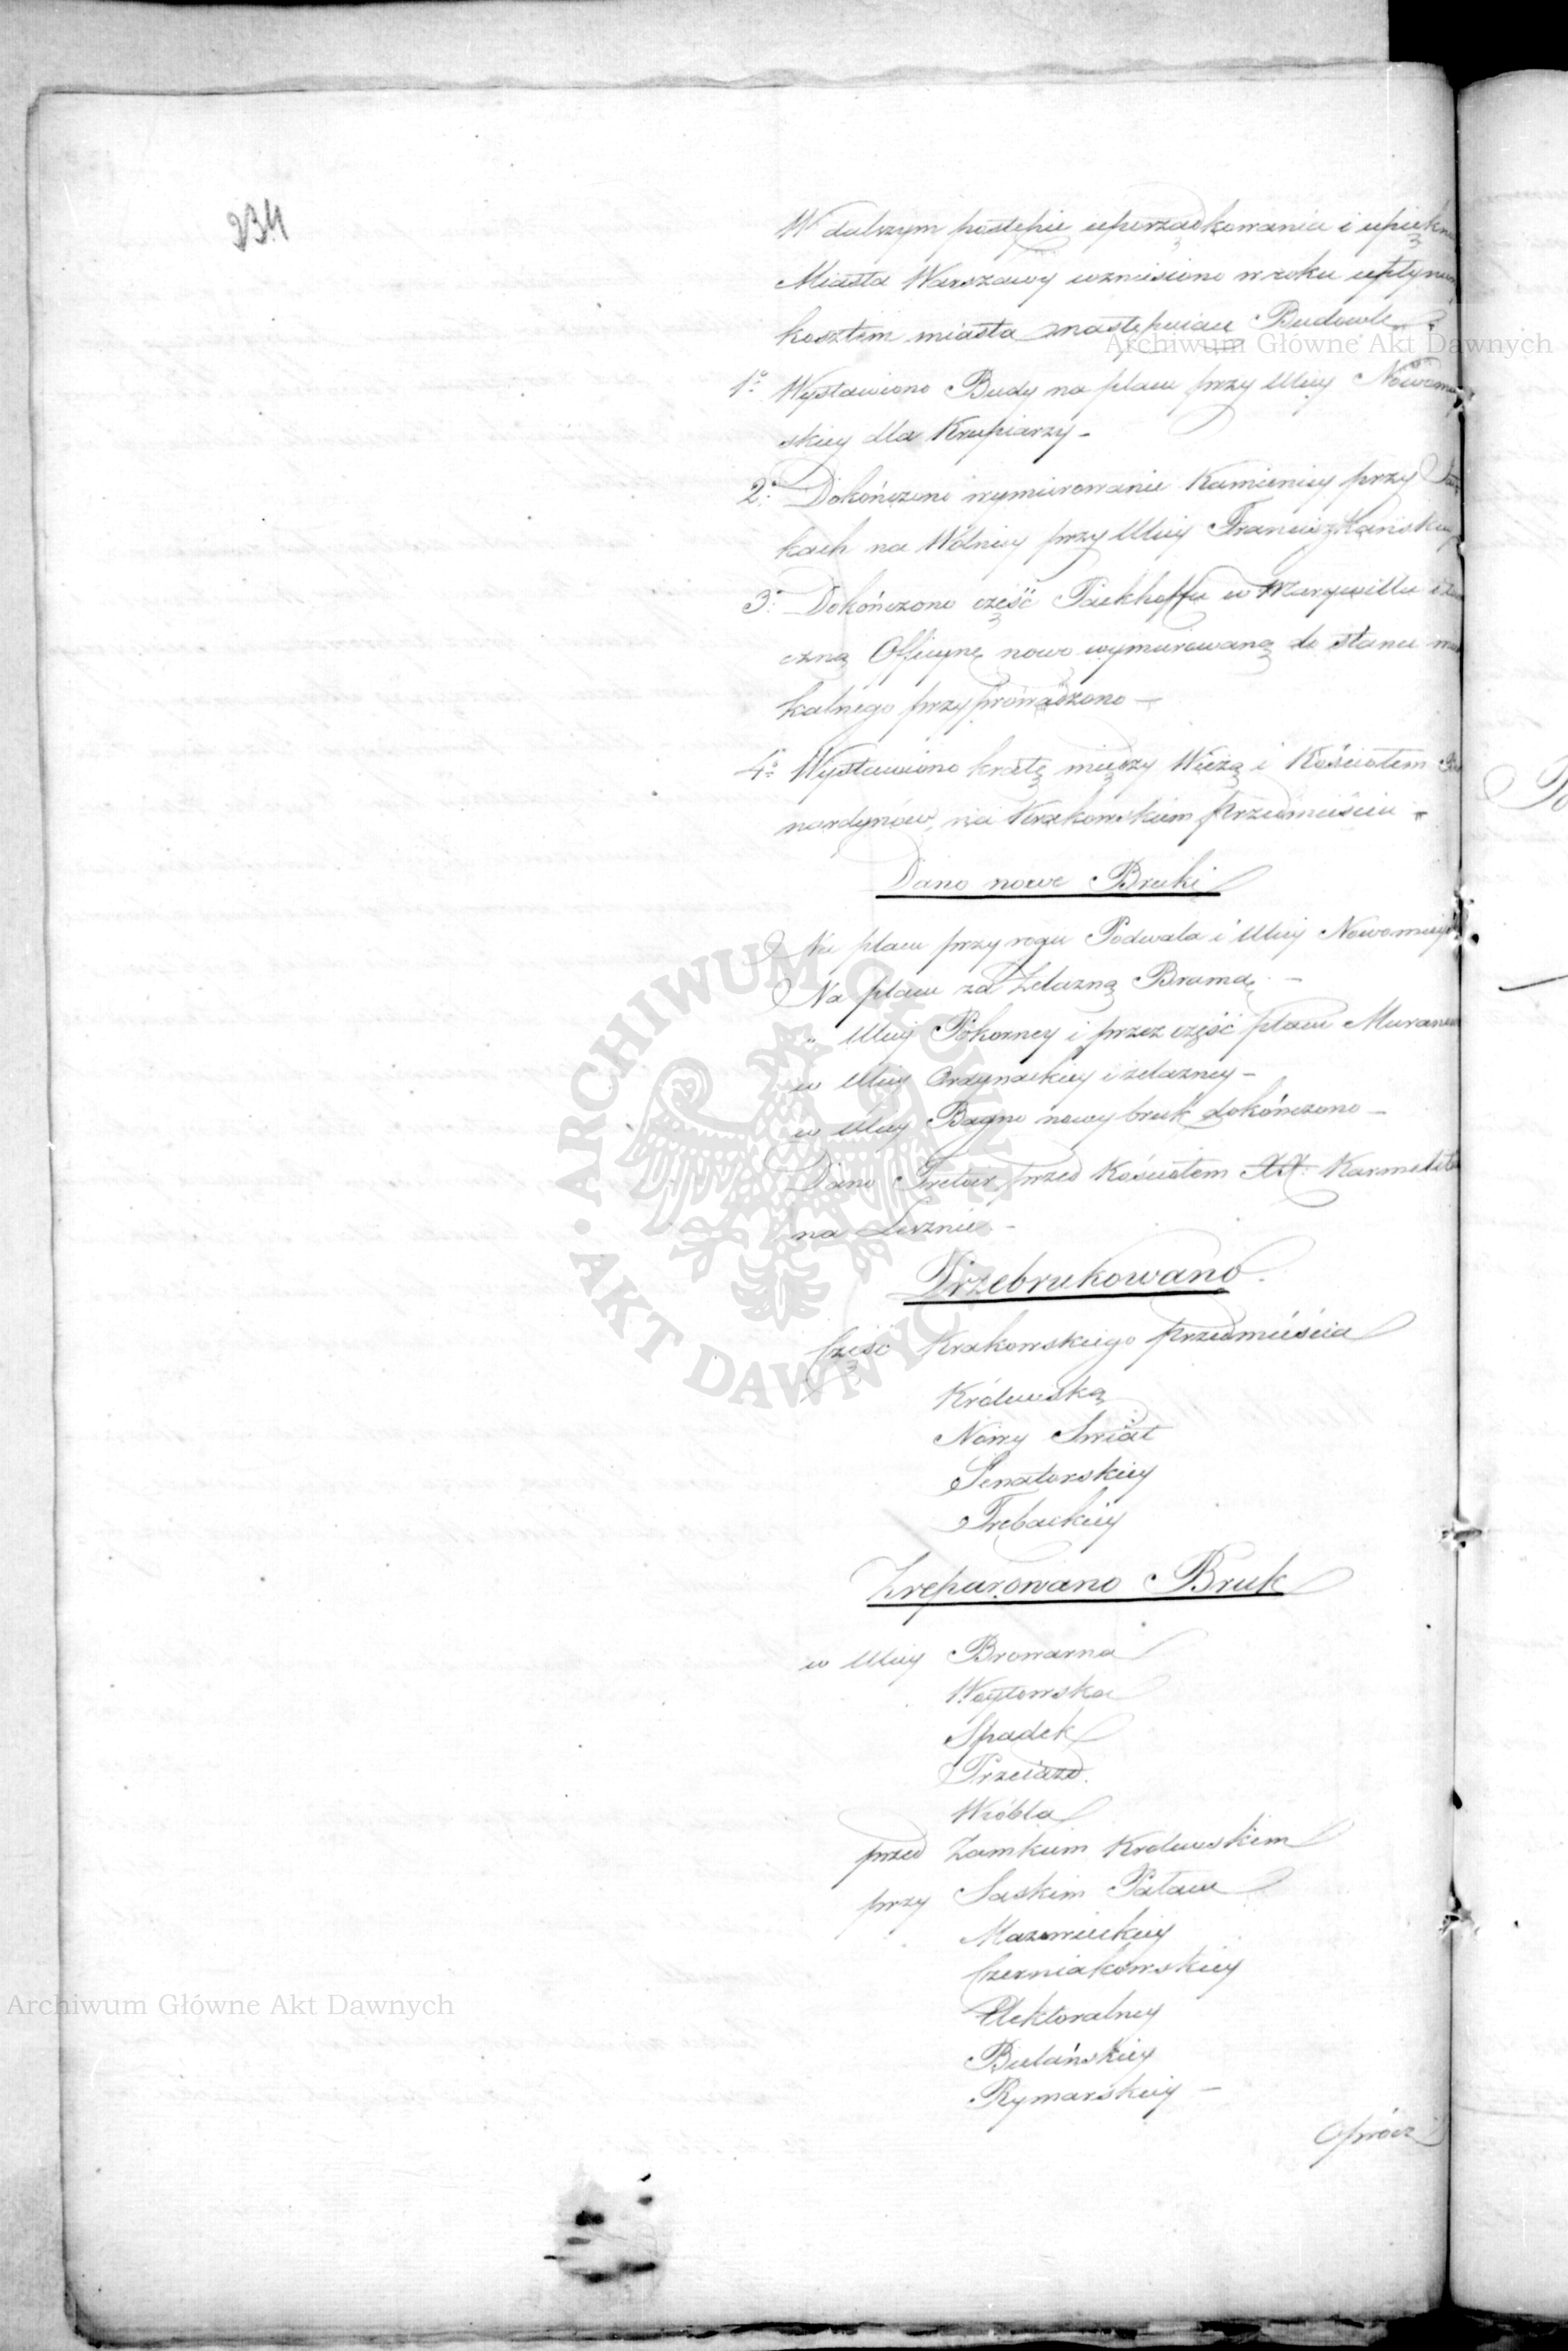 234
W dalszym postępie uporządkowania i upiękn
Miasta Warszawy wzniesiono w roku upłynion
kosztem miasta następuiące Budowle
Archiwum Główne Akt Dawnych
1o Wystawiono Budy na placu przy Ulicy Nowomiey
skiey dla Krupiarzy -
2o Dokończono wymurowanie Kamienicy przy Jat
kach na Wolnicy przy Ulicy Franciszkańskiey
3o Dokończono część Packhoffu w Marywillu i
czną Officynę nowo wymurowaną do stanu
kalnego przyprowadzono —
4o Wystawiono kratę między Wieżą i Kościołem
nardynów, na Krakowskim Przedmieściu -
Dano nowe Bruki
Na placu przy rogu Podwala i Ulicy Nowomieys
Na placu za Żelazną Bramą. -
" Ulicy Pokorney i przez część placu Muranow
w Ulicy Ordynackiey i żelazney -
w Ulicy Bagno nowy bruk dokończono -
Dano Tretoar przed Kościołem XX. Karmelitó
na Lesznie -
Przebrukowano.
Część Krakowskiego Przedmieścia
Królewską
Nowy Swiat
Senatorskiey
Trębackiey
Zreparowano Bruk
w Ulicy Browarna
Woytowska
Spadek
Przeiazd.
Wróbla
przed Zamkiem Krolewskiem
przy Saskim Pałacu
Mazowieckiey
Czerniakowskiey
Elektoralney
Bielańskiey
Rymarskiey —
Oprócz
ARCHIWUM GŁÓWNE · AKT DAWNYCH ·
Archiwum Główne Akt Dawnych